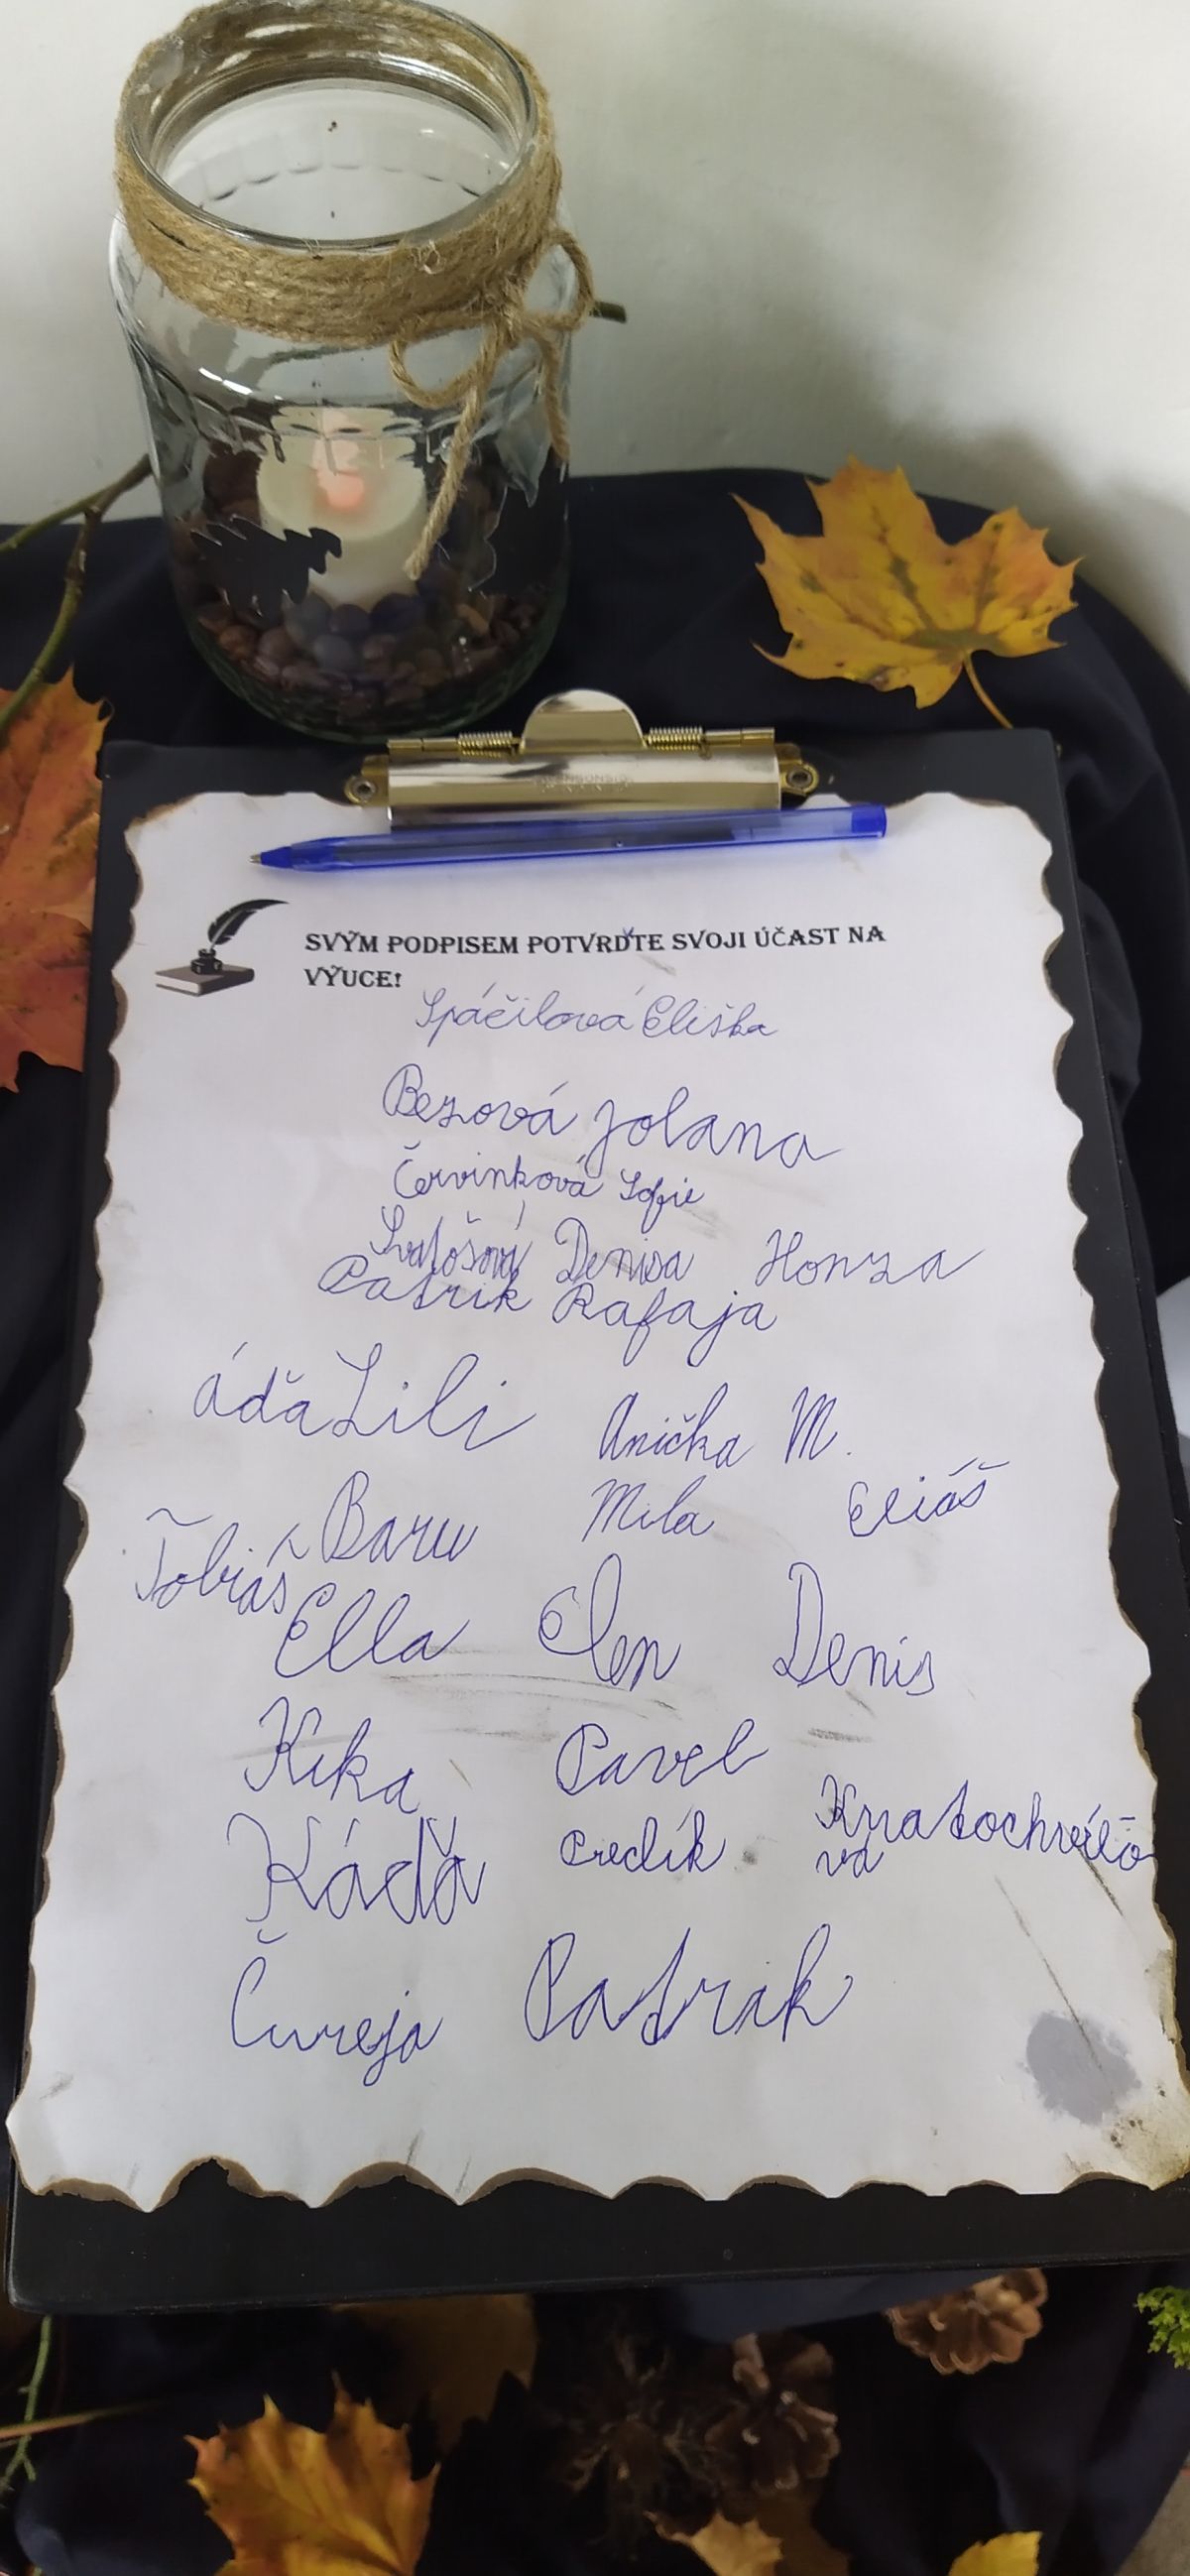 SVÝM PODPISEM POTVRĎTE SVOJI ÚČAST NA
VÝUCE!
Spáčilová Eliška
Bezová Jolana
Červinková Sofie
Svatošová Denisa Honza
Patrik Rafaja
áďa Lili Anička M.
Baru Mila Eliáš
Tobiáš
Ella Elen Denis
Kika Pavel
Káďa Kratochvílo
vá
Čureja Patrik